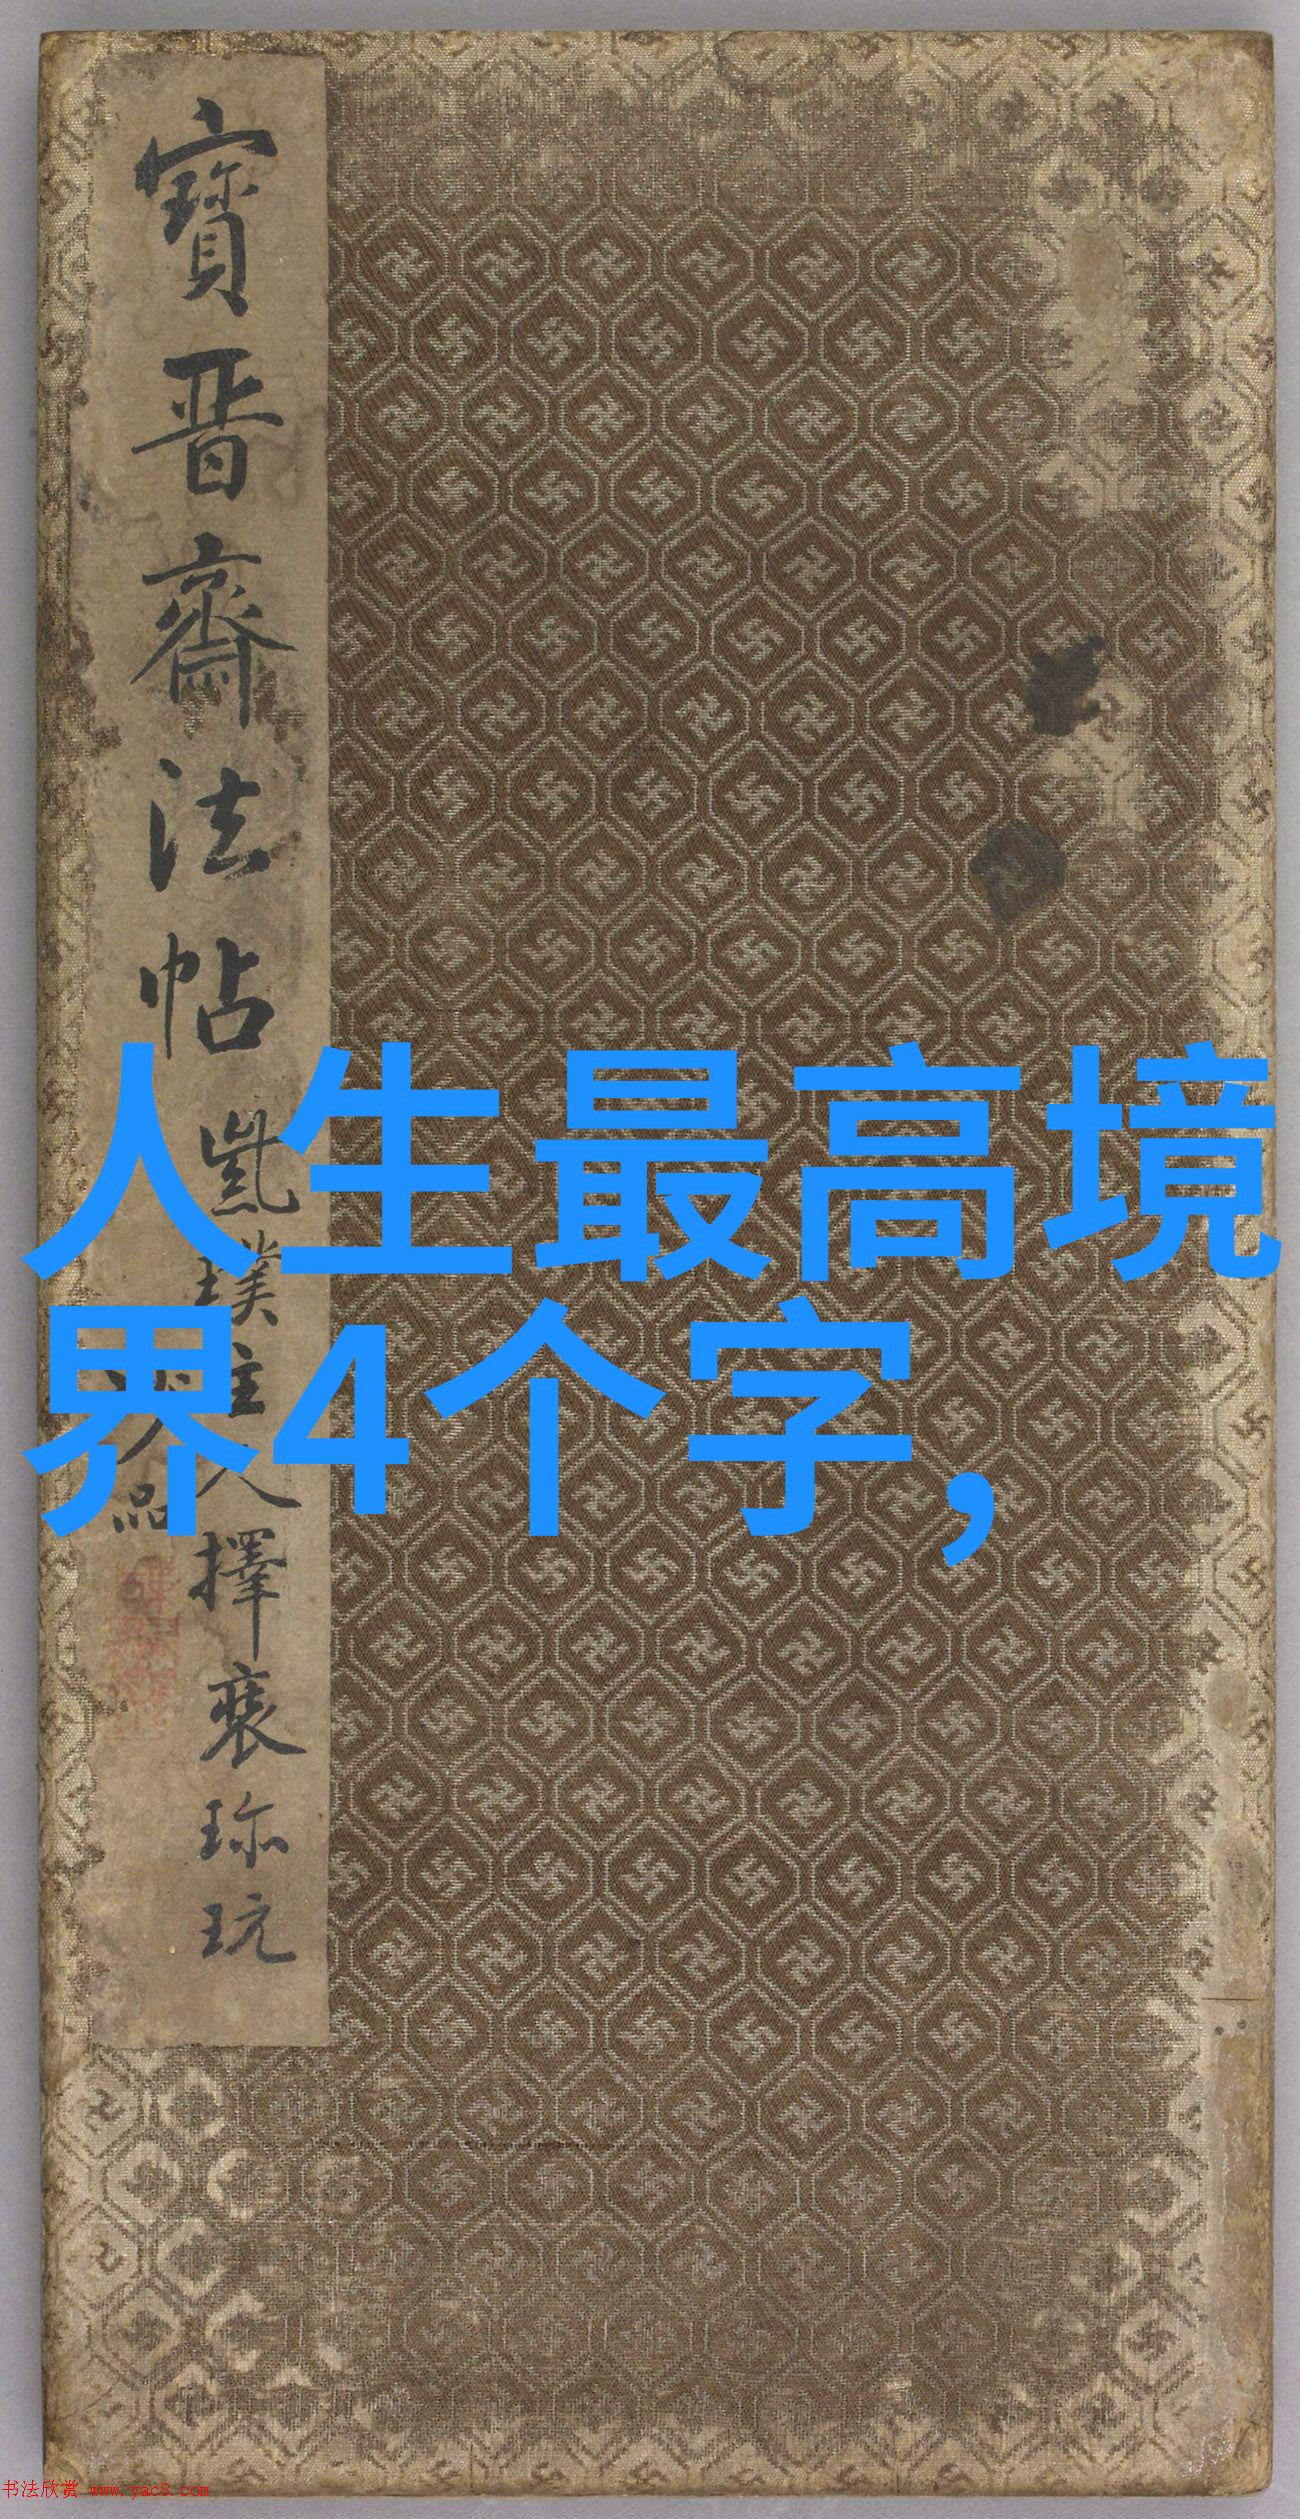 寶晉齋法帖
璞主人擇裘珎玩
人品
人生最高境
界4个字,
书法欣赏 www.yac8.com